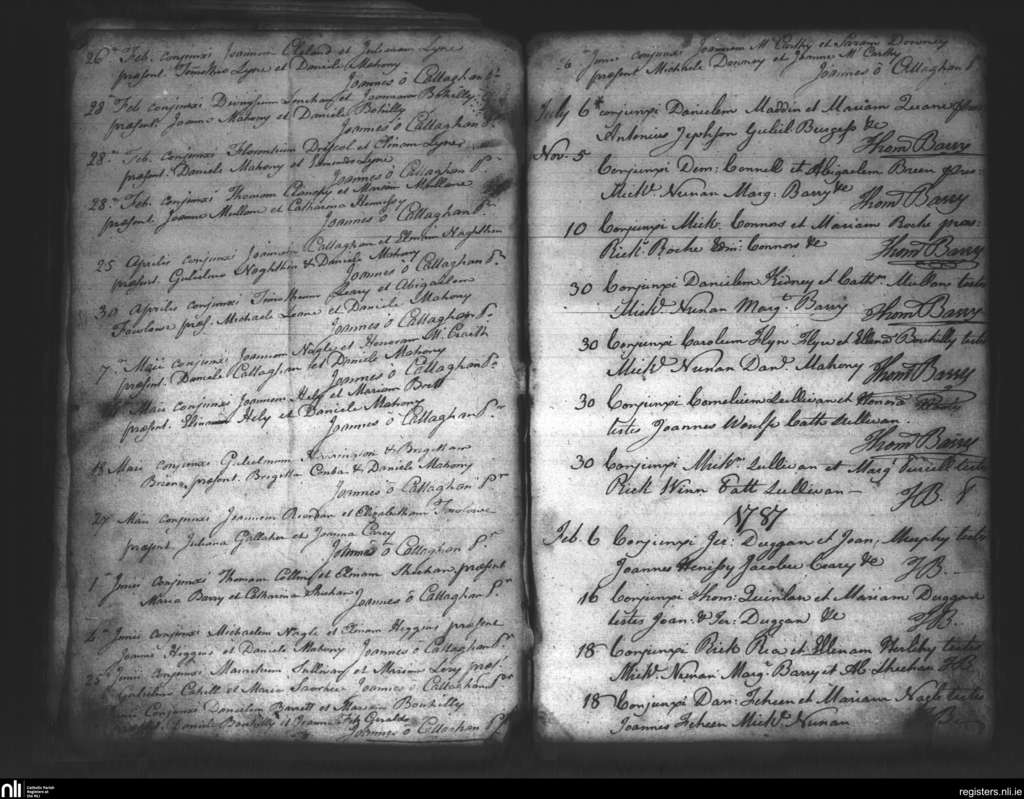 26 Feb. conjunxi Joannem Cleland et Julianam Lyne
present. Timotheo Lyne et Daniele Mahony
Joannes ō Callaghan
28 Feb conjunxi Dionysium et Joannam Bohilly
present. Joanne Mahony et Daniele Bohilly
Joannes ō Callaghan Pr
28 Feb. conjunxi Florentium Driscol et Elenam Lyne
present. Daniele Mahony et Edmundo Lyne
Joannes ō Callaghan Pr
28 Feb. conjunxi Thomam et Mariam Mullone
present. Joanne Mullone et Catharina Henessy
Joannes ō Callaghan Pr
25 Aprilis conjunxi Joannem Callaghan et Elenam Naghthen
present. Gulielmo Naghthen & Daniele Mahony
Joannes ō Callaghan Pr
30 Aprilis conjunxi Timotheum Leary et Abigailem
Fowlowe pres. Michaele Leane et Daniele Mahony
Joannes ō Callaghan Pr
7 Maii conjunxi Joannem Nagle et Honoram Mc Craith
present. Daniele Callaghan et Daniele Mahony
Joannes ō Callaghan Pr
Maii conjunxi Joannem Hely et Mariam Brett
present. Hely et Daniele Mahony
Joannes ō Callaghan Pr
18 Maii conjunxi Gulielmum & Brigettam
Briene present. Brigetta & Daniele Mahony
Joannes ō Callaghan Pr
27 Maii conjunxi Joannem Riordan et Elizabetham Fowlowe
present. Juliana Gallaher et Joanna Carey
Joannes ō Callaghan Pr
1 Junii conjunxi Thomam Collins et Elenam Shechan present
Maria Barry et Catharina Shechan
Joannes ō Callaghan Pr
Junii conjunxi Michaelem Nagle et Elenam Heggens present
Joanne Heggens et Daniele Mahony Joannes ō Callaghan Pr
25 Junii conjunxi Sullivan et Mariam pres.
Gulielmo Cahill et Maria Joannes ō Callaghan Pr
Junii conjunxi Danielem Barrett et Mariam Bouhilly
present. Daniele et Joanne Fitz Geralde
Joannes ō Callaghan Pr
6 Junii conjunxi Joannem Mc Carthy et Saram Downey
present Michaele Downey et Joanne Mc Carthy
Joannes ō Callaghan Pr
July 6 conjunxi Danielem Maddin et Mariam Quane pres
Antonius Jephson Guliel Burgess &c
Thom Barry
Nov. 5 Conjunxi Dem: Connell et Abigaelem Breen pres:
Mick. Nunan Marg: Barry &c
Thom Barry
10 Conjunxi Mick. Connors et Mariam Roche pres:
Rick. Roche Edm: Connors &c
Thom Barry
30 Conjunxi Danielem Kidney et Cathm. Mullan testes
Mick. Nunan Margt. Barry
Thom Barry
30 Conjunxi Carolum Flyn et Ellena Bouhilly testes
Mick. Nunan Danl. Mahony
Thom Barry
30 Conjunxi Cornelium Sullivan et Honora
testes Joannes Woulfe Cath Sullivan.
Thom Barry
30 Conjunxi Mickm Sullivan et Marg testes
Rick Winn Cath Sullivan —
TB.
1787
Feb. 6 Conjunxi Jer: Duggan et Joan; Murphy testes
Joannes Henissy Jacobus Ceary &c TB.
16 Conjunxi Thom: Quinlan et Mariam Duggan
testes Joan: & Jer: Duggan &c TB.
18 Conjunxi Rick Rea et Ellenam Herlihy testes
Mick. Nunan Margt. Barry et Ab Shechan TB
18 Conjunxi Dan: Feheen et Mariam Nagle testes
Joannes Feheen Mick. Nunan
nli
Catholic Parish
Registers at
the NLI
registers.nli.ie